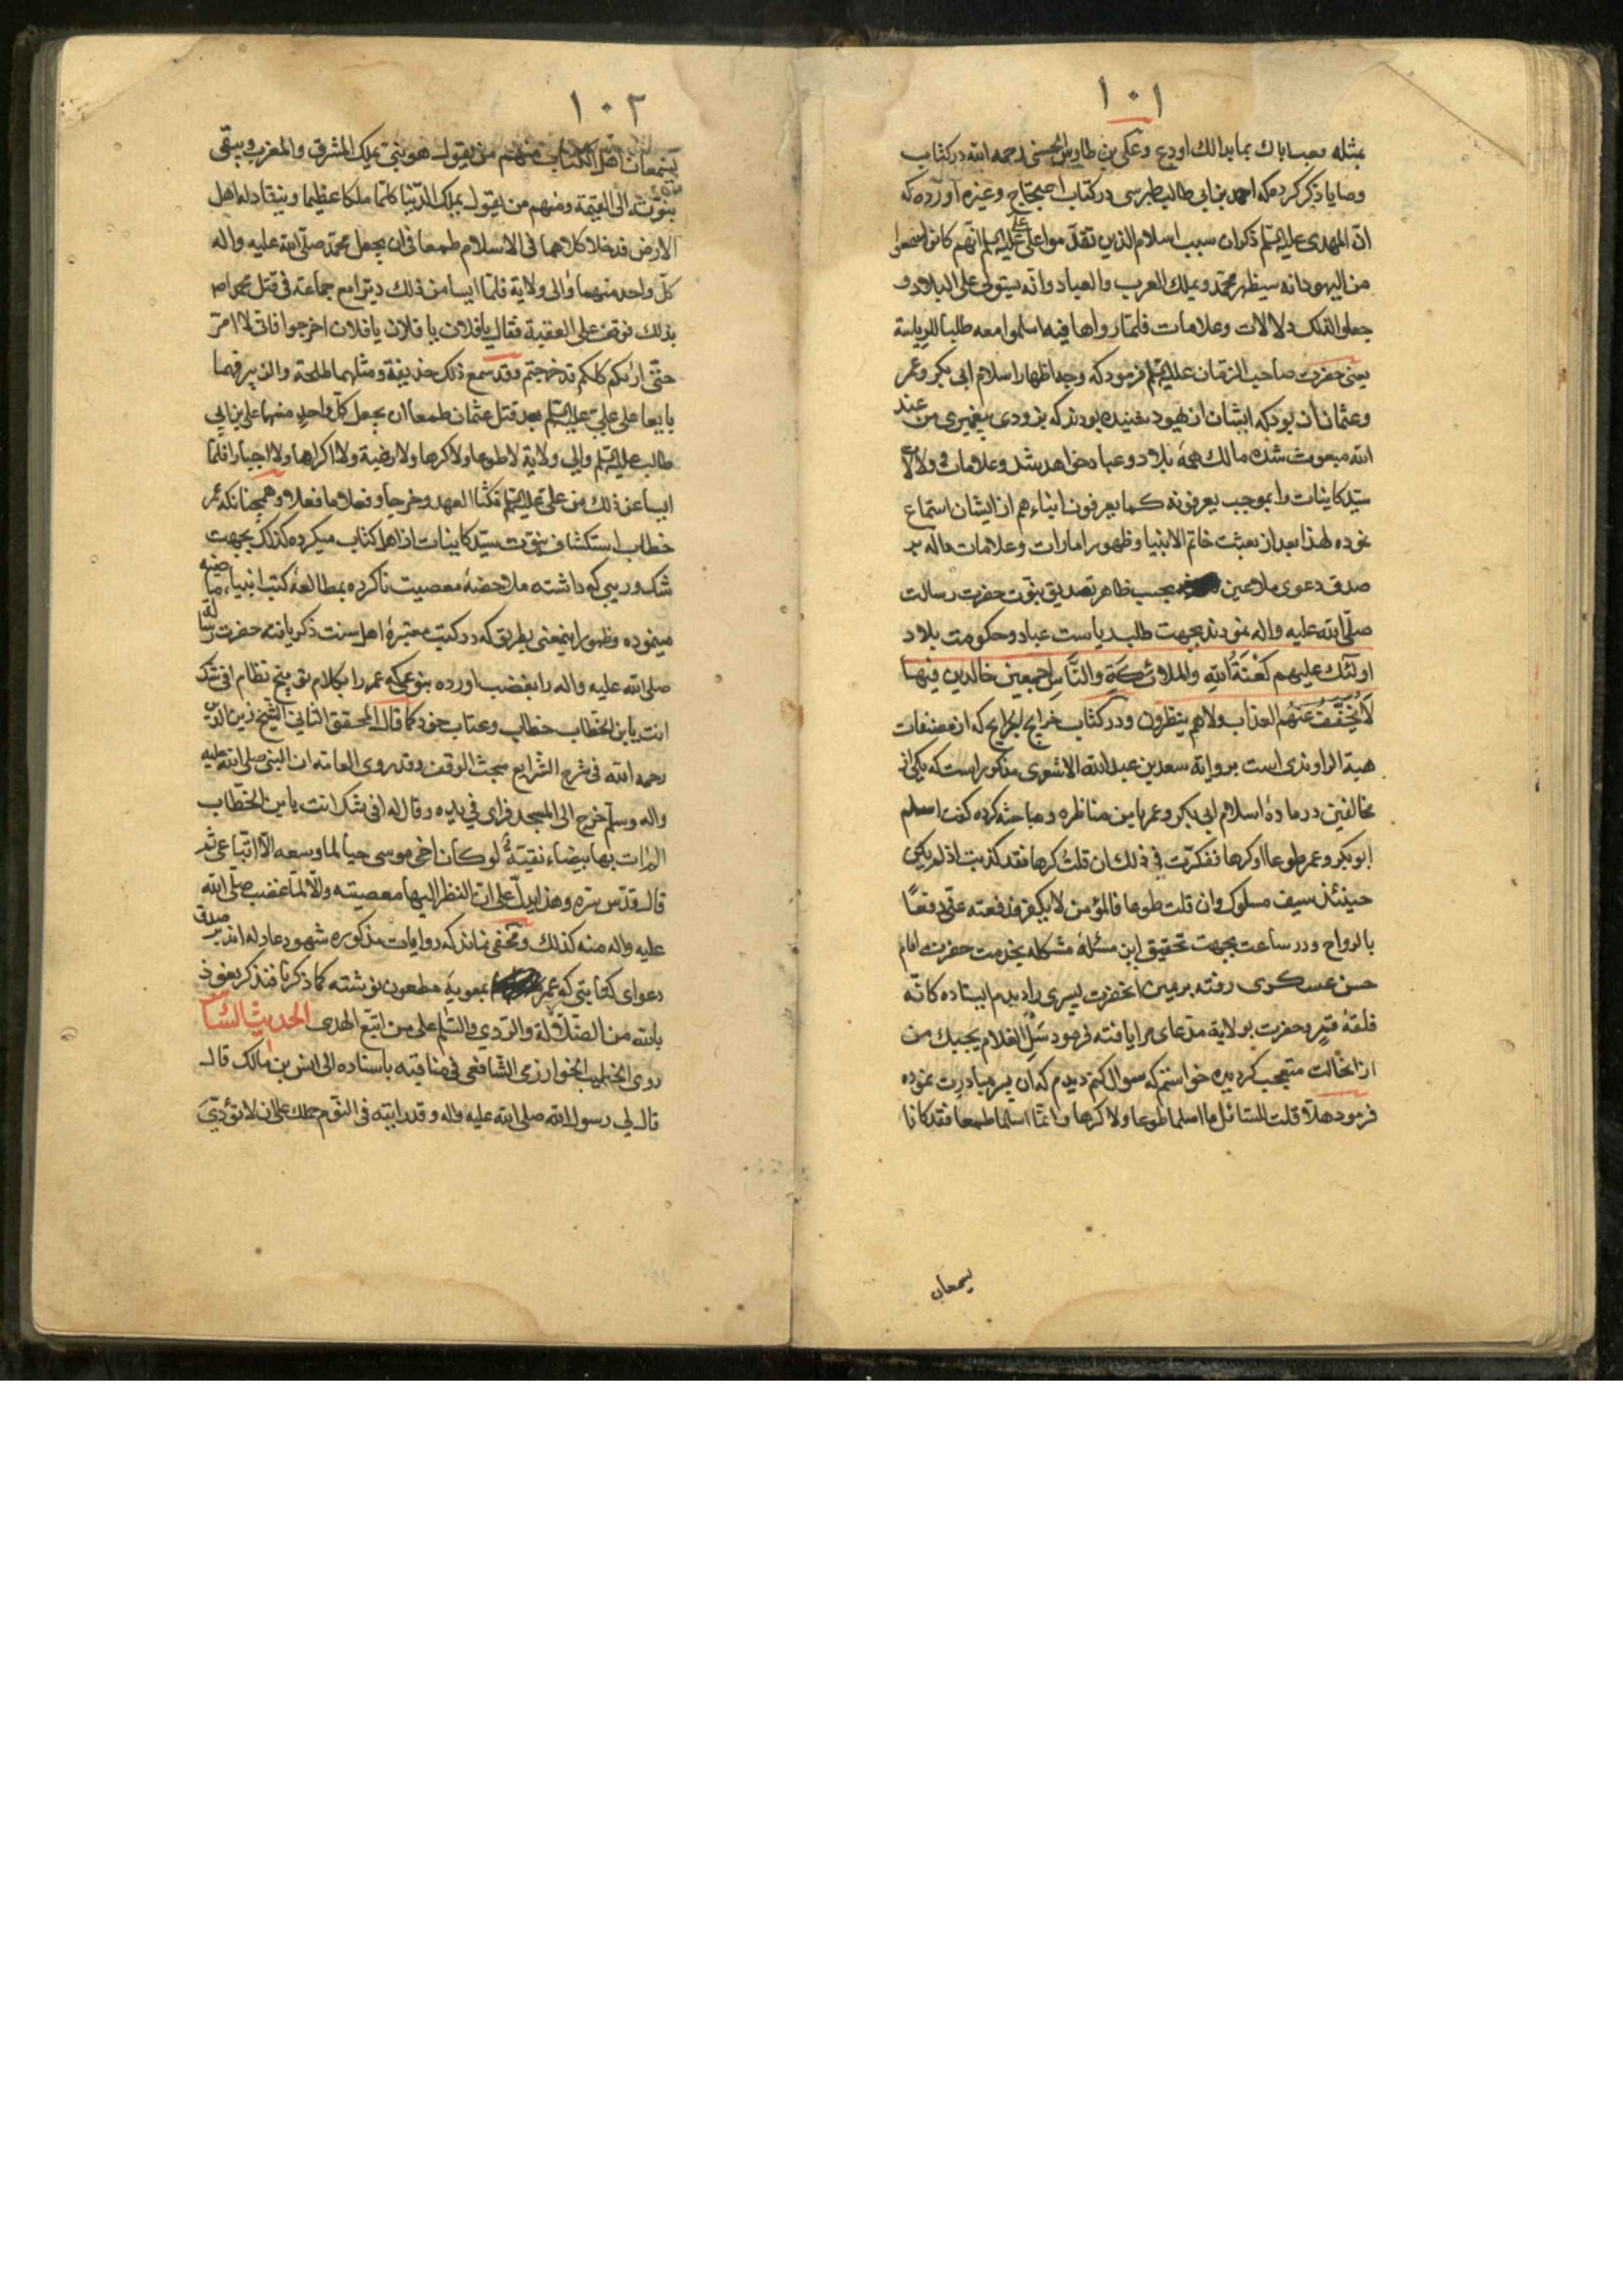 ١٠١
بمثله بعباباك بمابدالك اودع وعلى بن طاوس الحسنى رحمه الله در كتاب
وصايا ذكر كرده كه احمد بن ابى طالب طبرسى در كتاب احتجاج وغيره آورده كه
ان المهدى عليه السلم ذكر ان سبب اسلام الذين تقدموا على على عليه السلم انهم كانوا سمعوا
من اليهود انه سيظهر محمد ويملك العرب والعباد وانه سيتولى على البلاد و
جعلوا لذلك دلالات وعلامات فلما راواها فيه اسلموا معه طلبا للرياسة
يعنى حضرت صاحب الزمان عليه السلم فرمود كه وجه اظهار اسلام ابى بكر وعمر
وعثمان آن بود كه ايشان از يهود شنيده بودند كه بزودى پيغمبرى من عند
الله مبعوث شده مالك همهٔ بلاد وعباد خواهد شد وعلامات و دلالات
سيد كاينات را بموجب يعرفونه كما يعرفون ابناءهم از ايشان استماع
نموده لهذا بعد از بعثت خاتم الانبيا وظهور امارات وعلامات داله بر
صدق دعوى ملاعين بحسب ظاهر تصديق بنبوت حضرت رسالت
صلى الله عليه واله نمودند بجهت طلب رياست عباد وحكومت بلاد
اولئك عليهم لَعْنَةُ اللهِ والملائكةِ والنَّاسِ اجمعين خالدين فيها
لا يُخَفَّفُ عَنهُم العذاب ولا هم ينظرون ودر كتاب خرايج الجرايح كه از مصنفات
هبة الراوندى است برواية سعد بن عبد الله الاشعرى مذكور است كه يكى از
مخالفين در مادهٔ اسلام ابى بكر وعمر با من مناظره ومباحثه كرده كفت اسلم
ابو بكر وعمر طوعا او كرها ففكرت فى ذلك ان قلتُ كرها فقد كذبت اذ لم يكن
حينئذ سيف مسلوك وان قلت طوعا فالمؤمن لا يكفر فدفعته عنى دفعًا
بالرواح ودر ساعت بجهت تحقيق اين مسئلهٔ مشكله بخدمت حضرت امام
حسن عسكرى رفته بر يمين انحضرت پسرى را ديدم ايستاده كانّه
فلقهٔ قمرٍ وحضرت بولاية مدعاى مرا يافته فرمود سَلِ الغلام يجيبك من
از انحالت متعجب كرديده خواستم كه سوال كنم ديدم كه ان پسر مبادرت نموده
فرمود هلّا قلت للسائل ما اسلما طوعا ولا كرها وانما اسلما طمعا فقد كانا
يسمعان
١٠٢
يسمعان اهل الكتاب منهم من يقول هو نبى يملك المشرق والمغرب ويبقى
نبوّته الى القيمة ومنهم من يقول يملك الدنيا كلها ملكا عظيما وينقاد له اهل
الارض فدخلا كلاهما فى الاسلام طمعا فى ان يجعل محمد صلى الله عليه واله
كلّ واحد منهما والى ولاية فلما ايسا من ذلك دبّرا مع جماعة فى قتل محمد
بذلك فوقف على العقبة فقال يا فلان يا فلان يا فلان اخرجوا فانى لا امرّ
حتى اريكم كلكم قد خرجتم وقد سمع ذلك حذيفة ومثلهما طلحة والزبير فهما
بايعا على علىّ عليه السلم بعد قتل عثمان طمعا ان يجعل كلّ واحدٍ منهما على بن ابى
طالب عليه السلم والى ولاية لا طوعا ولا كرها ولا رضية ولا اكراها ولا اجبارا فلما
ايسا عن ذلك من على عليه السلم نكثا العهد وخرجا وفعلا ما فعلا وهمچنانكه عمر
خطاب استكشاف نبوّت سيد كاينات از اهل كتاب ميكرده كذلك بجهت
شك وريبى كه داشته ملاحضهٔ معصيت ناكرده بمطالعهٔ كتب انبياء ماضيه
مينموده وظهور اينمعنى بطريق كه در كتب معتبرهٔ اهل سنت ذكر يافته حضرت رسالت
صلى الله عليه واله را بغضب اورده بنوعى كه عمر را بكلام توبيخ نظام افى شك
انت يابن الخطاب خطاب وعتاب فرمود كما قال المحقق الثانى الشيخ زين الدين
رحمه الله فى شرح الشرايع مبحث الوقف وقد روى العامه ان النبى صلى الله عليه
واله وسلم خرج الى المسجد فراى فى يده وقال له افى شك انت يابن الخطاب
الم ات بها بيضاء نقيّة لو كان اخى موسى حيا لما وسعه الّا اتباعى ثم
قال قدّس سره وهذا يدلّ على انّ النظر اليها معصيته والّا لما غضب صلى الله
عليه واله منه كذلك ومخفى نماند كه روايات مذكوره شهود عادله اند بر صدق
دعواى كتابتى كه عمر بمعوية مطعون نوشته كما ذكرنا فنذكر نعوذ
بالله من الضلالة والردى والسلم على من اتبع الهدى الحديث السابع
روى الخطيب الخوارزمى الشافعى فى مناقبه باسناده الى انس بن مالك قال
قال لى رسول الله صلى الله عليه واله وقد رايته فى النوم ما حملك على ان لا تؤدّى